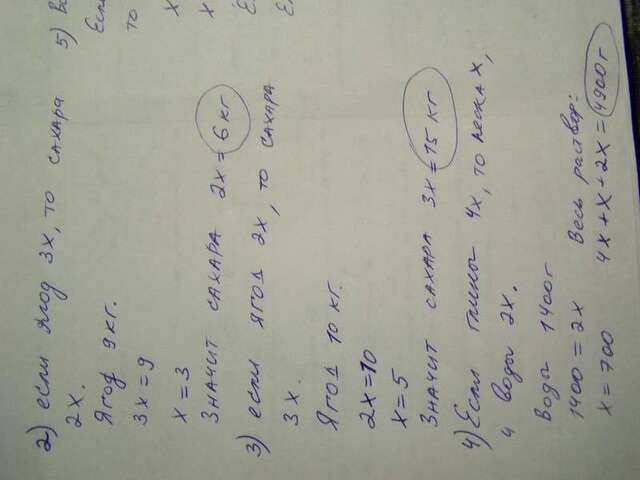 2) если ягод 3х, то сахара
2х.
Ягод 9 кг.
3х=9
х=3
Значит сахара 2х=6 кг
3) если ягод 2х, то сахара
3х.
Ягод 10 кг.
2х=10
х=5
Значит сахара 3х=15 кг
4) Если глины 4х, то песка х,
и воды 2х.
Воды 1400 г
1400=2х
х=700
Весь раствор:
4х+х+2х=4900 г
5)
Если
то
х
х